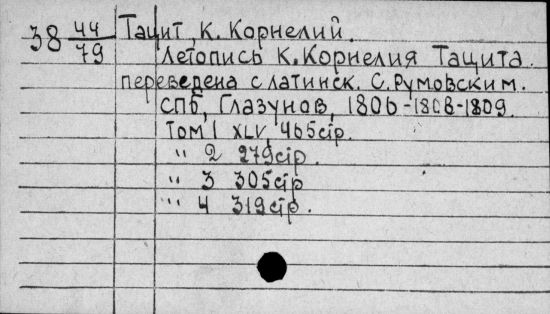 38 44/79 Тацит, К. Корнелий.
Летопись К. Корнелия Тацита.
переведена с латинск. С. Румовским.
СПб, Глазунов, 1806-1808-1809.
Том 1 XLV, 465 стр.
" 2 279 стр.
" 3 305 стр
" 4 319 стр.